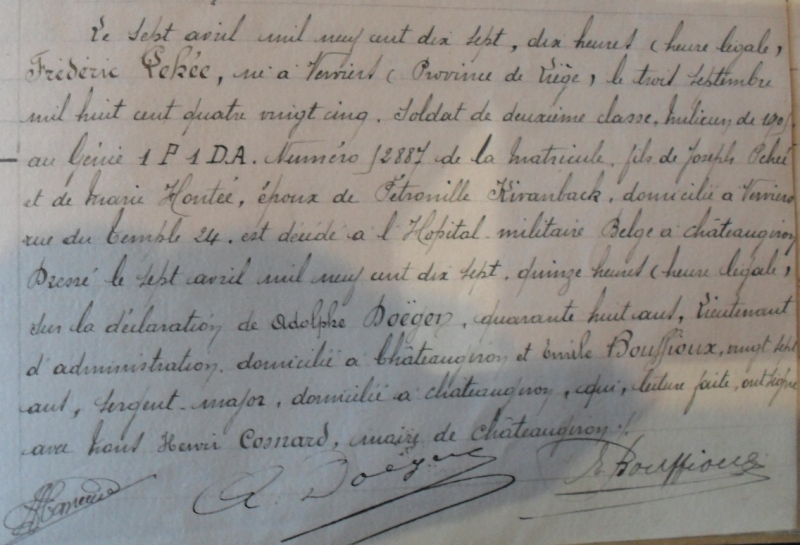 Le sept avril mil neuf cent dix sept, dix heures (heure légale,
Frédéric Pehée, né à Verviers (Province de Liège, le trois septembre
mil huit cent quatre vingt cinq. Soldat de deuxième classe. Milicien de 1905.
au Génie 1 P 1 D.A. Numéro 12887 de la Matricule, fils de Joseph Pehée
et de Marie Hontée, époux de Pétronille Kivanback, domicilié à Verviers
rue du Temple 24. est décédé à l'Hopital militaire Belge à châteaugiron
Dressé le sept avril mil neuf cent dix sept. quinze heures (heure légale,
sur la déclaration de Adolphe Doëgen, quarante huit ans, Lieutenant
d'administration. domicilié à Châteaugiron et Emile Bouffioux, vingt sept
ans, sergent-major, domicilié à châteaugiron, qui, lecture faite, ont signé
avec nous Henri Cosnard, maire de châteaugiron./.
A. Doëgen E. Bouffioux